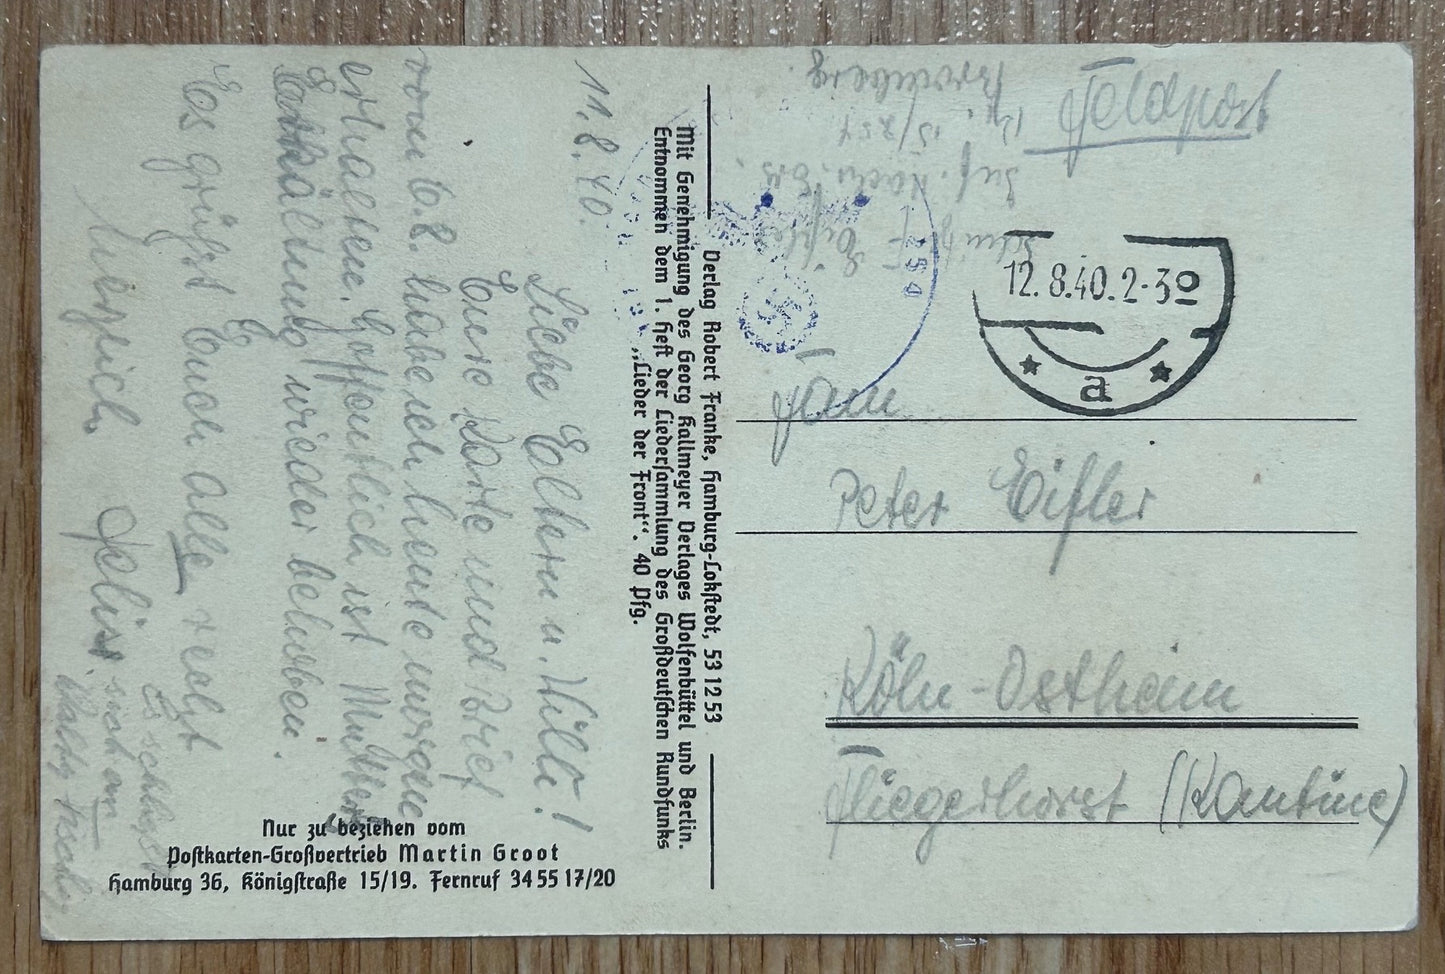 Feldpost
12.8.40.2-30
a
254
Fam
Peter Eifler
Köln-Ostheim
Fliegerhorst (Kantine)
Eifler
Inf. Nachr. Ers.
Bromberg.
11.8.40.
Liebe Eltern u. Willi!
Eure Karte und Brief
vom 6.8. habe ich heute morgen
erhalten. Hoffentlich ist Mutters
Erkältung wieder behoben.
Es grüßt Euch alle recht
herzlich
Verlag Robert Franke, Hamburg-Lokstedt, 53 12 53
Mit Genehmigung des Georg Kallmeyer Verlages Wolfenbüttel und Berlin.
Entnommen dem 1. Heft der Liedersammlung des Großdeutschen Rundfunks
„Lieder der Front“. 40 Pfg.
Nur zu beziehen vom
Postkarten-Großvertrieb Martin Groot
Hamburg 36, Königstraße 15/19. Fernruf 34 55 17/20